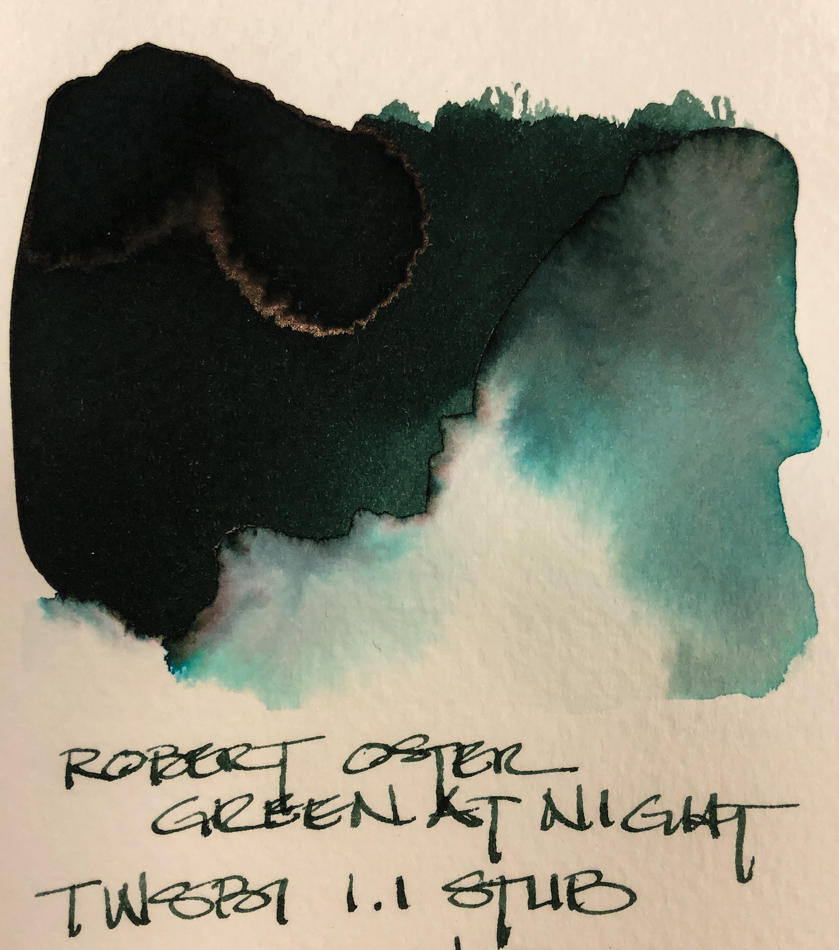 ROBERT OSTER
GREEN AT NIGHT
TWSBI 1.1 STUB